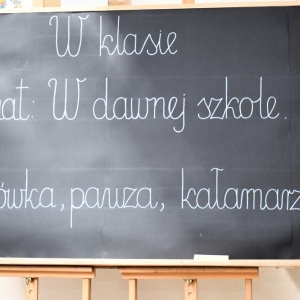 W klasie
at: W dawnej szkole.
ówka, pauza, kałamarz